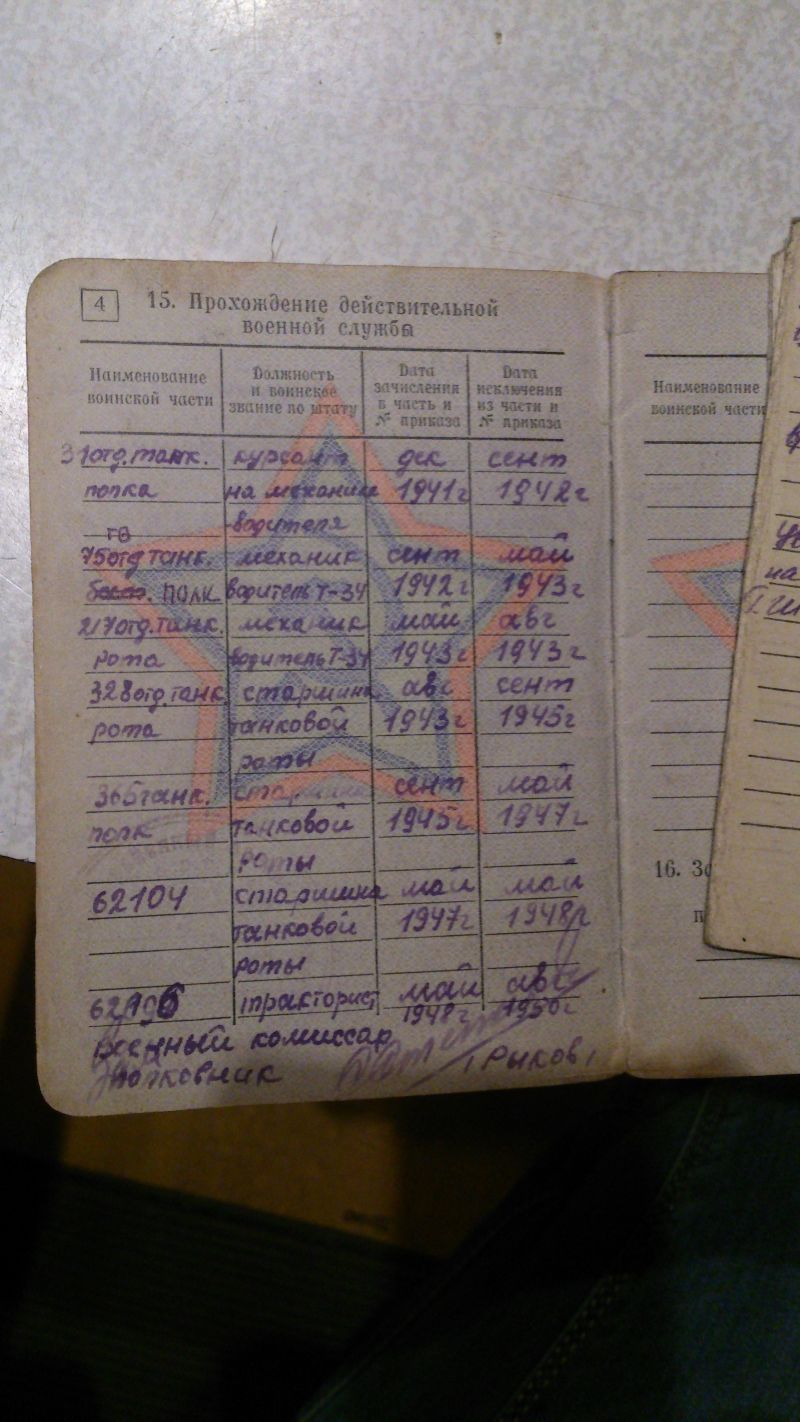 4 15. Прохождение действительной
военной службы
Наименование воинской части
Должность и воинское звание по штату
Дата зачисления в часть и № приказа
Дата исключения из части и № приказа
31отд.танк. курсант дек сент
полка на механика 1941г 1942г
-водителя
гв
75отд танк. механик сент май
ПОЛК водитель Т-34 1942г 1943г
217отд.танк. механик май авг
рота водитель Т-34 1943г 1943г
328отд.танк. старшина авг сент
рота танковой 1943г 1945г
роты
365танк. старшина сент май
полк танковой 1945г 1947г
роты
62104 старшина май май
танковой 1947г 1948г
роты
тракторист май авг
1948г 1950г
Военный комиссар
полковник (Рыков)
Наименование
воинской части
16.